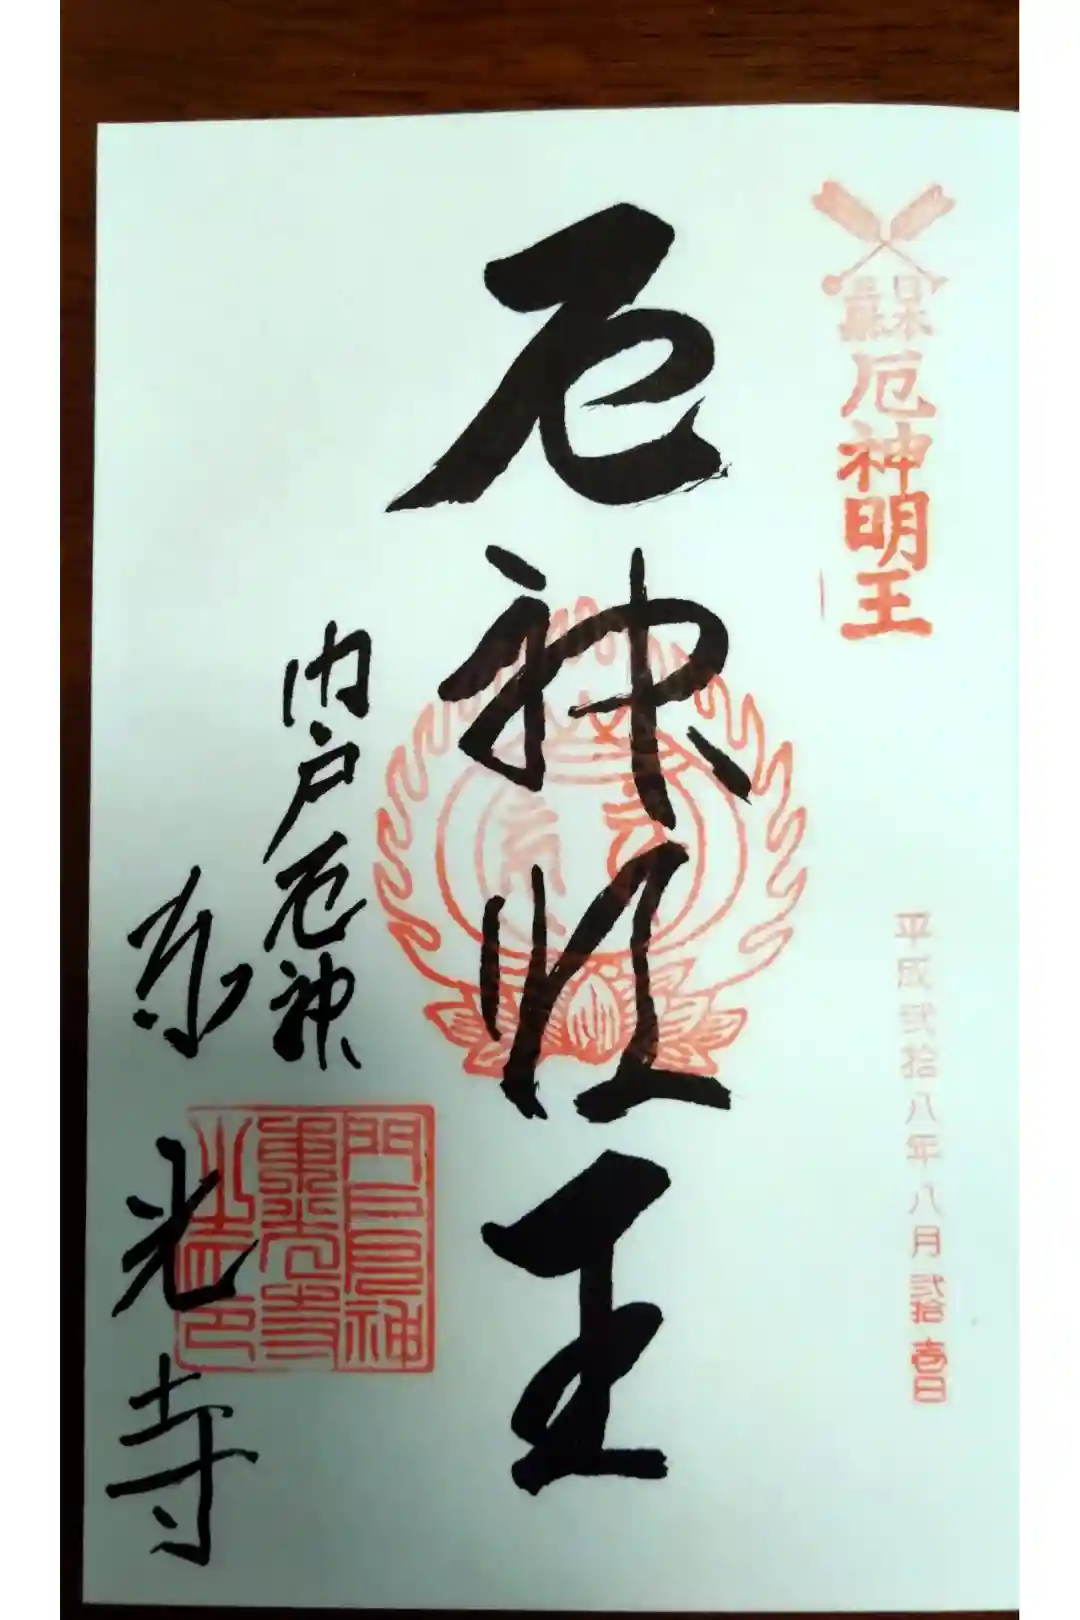 日本
厄神明王
平成弐拾八年八月弐拾壱日
厄神明王
門戸厄神
東光寺
門戸厄神
東光寺